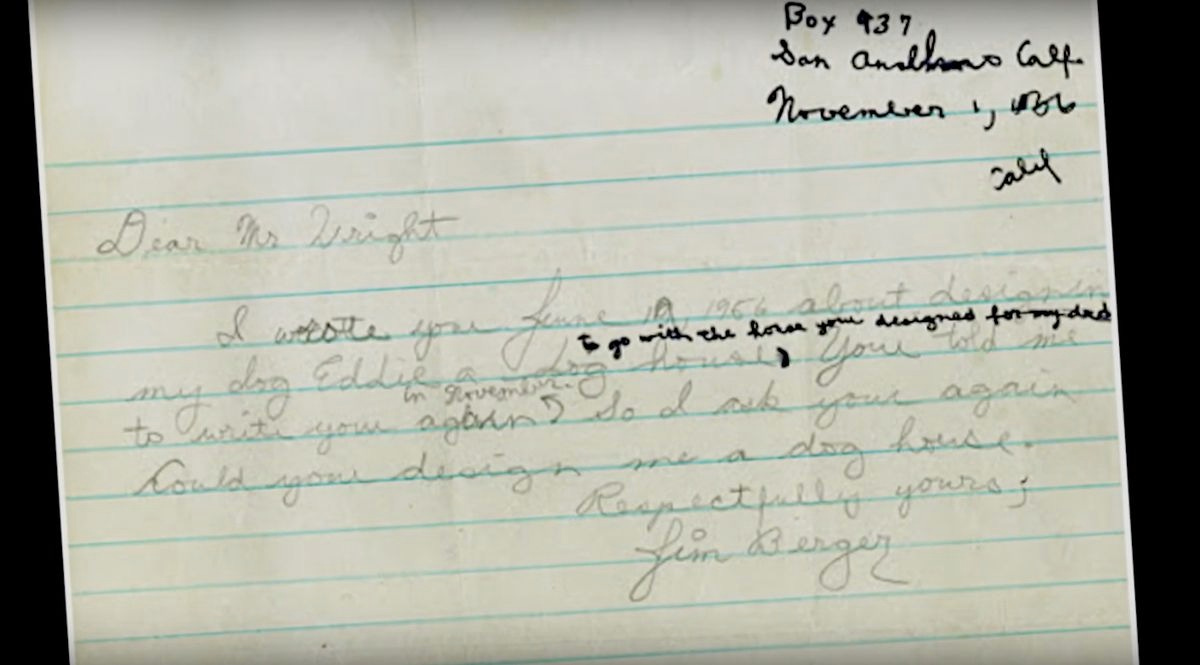 Box 937
San Anselmo Calf.
November 1, 1956
Calif
Dear Mr Wright
I wrote you June 19, 1956 about designin
to go with the house you designed for my dad
my dog Eddie a dog house, You told me
in November.
to write you again So I ask you again
Could you design me a dog house.
Respectfully yours;
Jim Berger